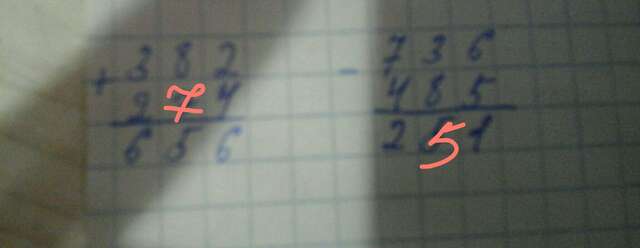 + 3 8 2
2 7 4
6 5 6
- 7 3 6
4 8 5
2 5 1